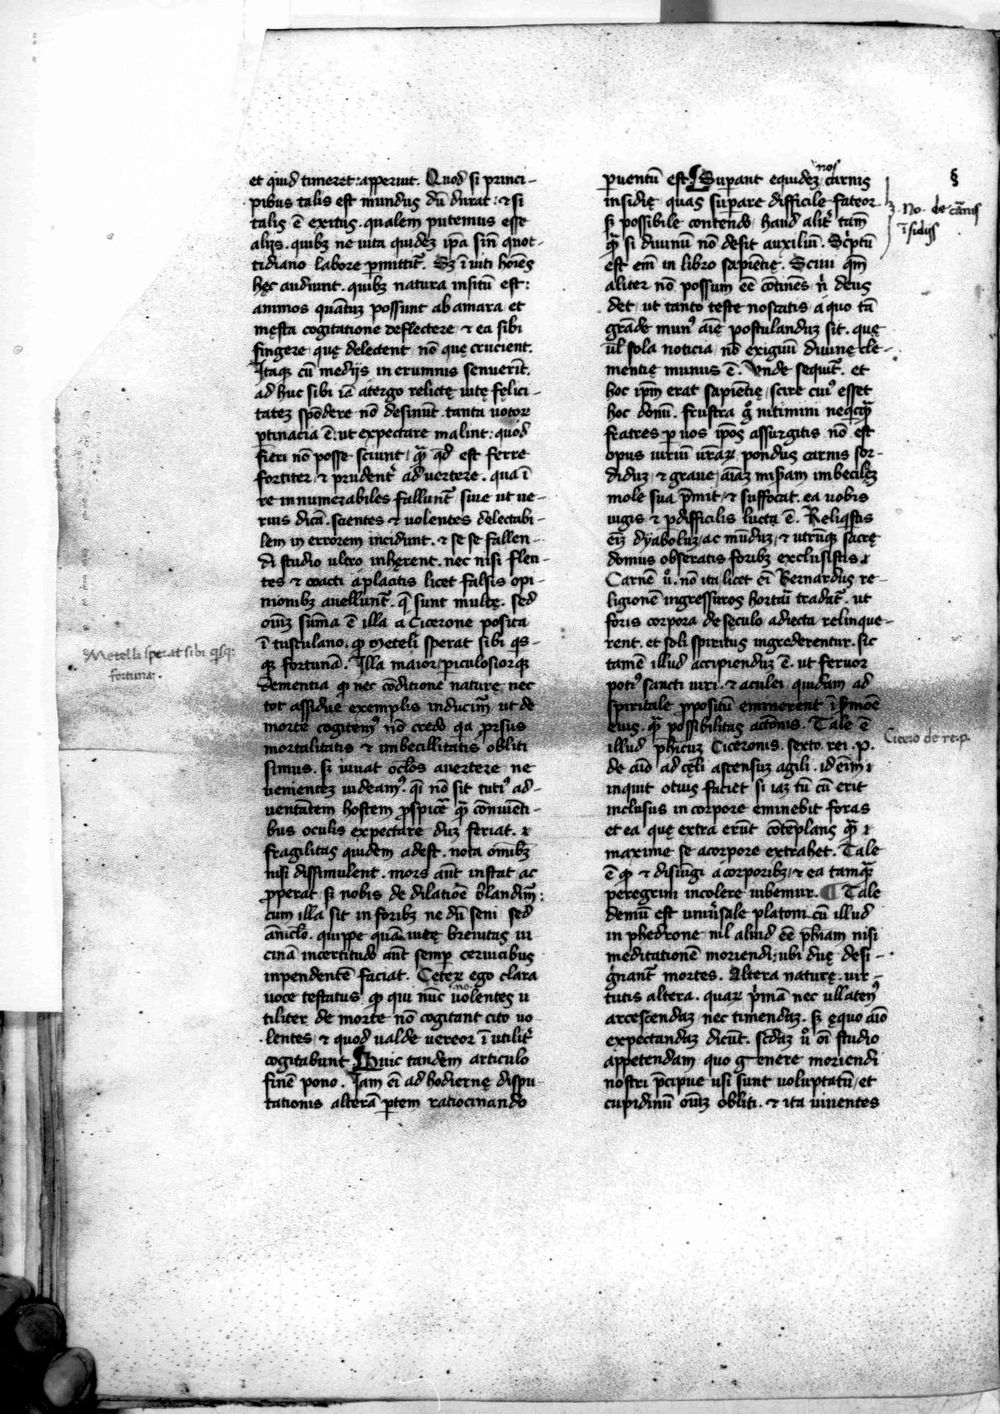 et quid timeret: apperuit. Quod si princi-
pibus talis est mundus dū durat: ⁊ si
talis ē exitus. qualem putemus esse
alijs. quibꝫ ne uita quideꝫ ip̄a sin̄ quot-
tidiano labore ꝑmittit̄. Sꝫ īuiti hoīes
hęc audiunt. quibꝫ natura insitū est:
animos quātuꝫ possunt ab amara et
męsta cogitatione deflectere ⁊ ea sibi
fingere quę delectent nō quę crucient.
Itaqꝫ cū medijs in erumnis senuerīt.
ad huc sibi iā atergo relictę uitę fęlici-
tateꝫ spōdere nō desinūt. tanta uotoꝝ
ꝑtinacia ē: ut expectare malint: quod
fieri nō posse sciunt / qꝫ̄ qd̄ est ferre
fortiter ⁊ prudent̄ aduertere. qua ī
re innumerabiles fallunt̄ siue ut ue-
rius dicā. scientes ⁊ uolentes delectabi-
lem in errorem incidunt. ⁊ se se fallen-
di studio ultro inhęrent. nec nisi flen-
tes ⁊ coacti aplacitis licet falsis opi-
nionibꝫ auellunt̄. q̄ sunt multę. sed
oīuꝫ sūma ē illa a Cicerone posita
ī tusculano. ꝙ Meteli sperat sibi qs-
qꝫ fortunā. Illa maior / ꝑiculosiorqꝫ
dementia ꝙ nec cōditione naturę nec
tot assidue exemplis inducim̄ ut de
morte cogitemꝰ nō credo qa ꝓrsus
mortalitatis ⁊ imbecillitatis obliti
simus. sꝫ iuuat oc̄los auertere ne
uenienteꝫ uideamꝰ. qi nō sit tutiꝰ ad-
uentātem hostem ꝓspicē qꝫ̄ cōniuēti-
bus oculis expectare duꝫ feriat. ⁊
fragilitas quidem adest. nota omībꝫ
nisi dissimulent. mors aūt instat ac
ꝓperat. sꝫ nobis de dilatiōe blandim̄:
cum illa sit in foribꝫ ne dū seni sed
anic̄lo. quippe quā uitę breuitas ui
cinā incertitudo aūt semꝑ ceruicibus
inpendentē faciat. Ceteꝝ ego clara
uoce testatus ꝙ qui nūc no uolentes u
tiliter de morte nō cogitant cito uo-
lentes / ⁊ quod ualde uereor īutilit̄
cogitabunt. Huic tandem articulo
finē pono. Iam ei ad hodiernę dispu-
tationis alterā ꝑtem ratiocinando
Metelli sperat sibi qsqꝫ
fortunā.
ꝑuentū est. Suꝑant equideꝫ nos carnis
insidię quas suꝑare difficile fateor
sꝫ possibile contendo / haud alit̄ tam̄
qꝫ̄ si diuinū nō desit auxiliū. Sc̄ptū
est em̄ in libro sapientię. Sciui qm̄
aliter nō possum eē cōtinēs n̄ deus
det / ut tanto teste noscatis a quo tā
grāde munꝰ aīe postulanduꝫ sit. quę
ul̄ sola noticia nō exiguū diuinę cle-
mentię munus ē. Unde sequit̄. et
hoc ipm̄ erat sapientię / scire cuiꝰ esset
hoc donū. frustra g̊ nitimini neqcqꝫ̄
fratres ꝑ uos ip̄os assurgitis nō est
opus uiriū ur̄aꝝ. pondus carnis sor-
diduꝫ ⁊ graue / aīaꝫ mis̄am imbecileꝫ
mole sua p̄mit / ⁊ suffocat. ea uobis
iugis ⁊ ꝑdifficilis lucta ē. Reliqstis
eīꝫ dyaboluꝫ / ac mūduꝫ / ⁊ utrūqꝫ sacrę
domus obseratis foribꝫ exclusistis ⁊
Carnē ů. nō ita licet ei Bernardus re-
ligionē ingressuros hortāī tradat̄. ut
foris corpora de sęculo adiecta relinque-
rent. et soli spiritus ingrederentur. sic
tamē illud accipienduꝫ ē. ut feruor
potiꝰ sancti uiri. ⁊ aculei quidam ad
spiritale ꝓpositū eminerent ī sermōe
eius. qꝫ̄ possibilitas actōnis. Tale ē
illud ph̄icuꝫ Ciceronis. sexto. rei. p.
de aīo ad cęli ascensuꝫ agili. id eīm ⁊
inquit otius faciet si iaꝫ tū cū erit
inclusus in corpore eminebit foras
et ea quę extra erūt cōtēplans qꝫ̄ ⁊
maxime se acorpore extrahet. Tale
ē ꝙ ⁊ disiūgi acorporibꝫ / ⁊ ea tamqꝫ̄
peregrini incolere iubemur. ¶ Tale
demū est uniūsale platonī cū illud
in phedrone nil aliud eē ph̄iam nisi
meditationē moriendi: ubi duę desi-
gnant̄ mortes. Altera naturę. uir-
tutis altera. quaꝝ p̄mā nec ullatenꝰ
arcescendaꝫ nec timendaꝫ. sꝫ ęquo aīo
expectandaꝫ dicūt. sc̄daꝫ ů oī studio
appetendam quo genere moriendi
nostri p̄cipue usi sunt uoluptatū / et
cupidinū oīuꝫ obliti. ⁊ ita uiuentes
§
3. No. de carnis
īsidijs
Cicero de re. p.